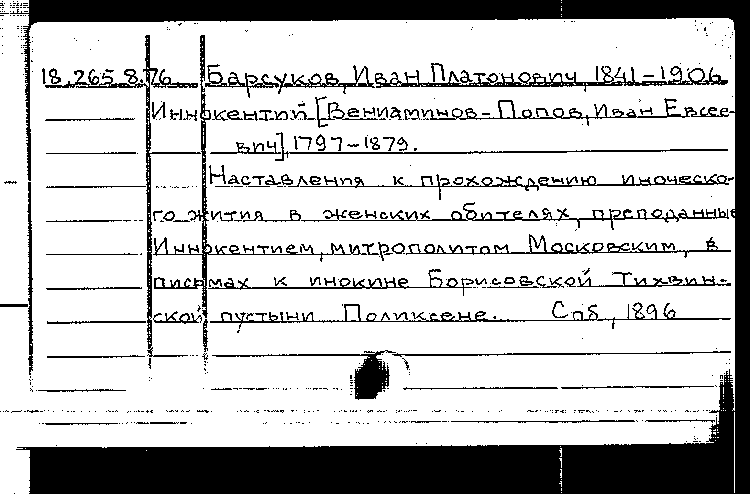 18.265.8.76 Барсуков, Иван Платонович, 1841-1906
Иннокентий [Вениаминов-Попов, Иван Евсее-
вич], 1797-1879.
Наставления к прохождению иноческо-
го жития в женских обителях, преподанные
Иннокентием, митрополитом Московским, в
письмах к инокине Борисовской Тихвин-
ской пустыни Поликсене. Спб, 1896